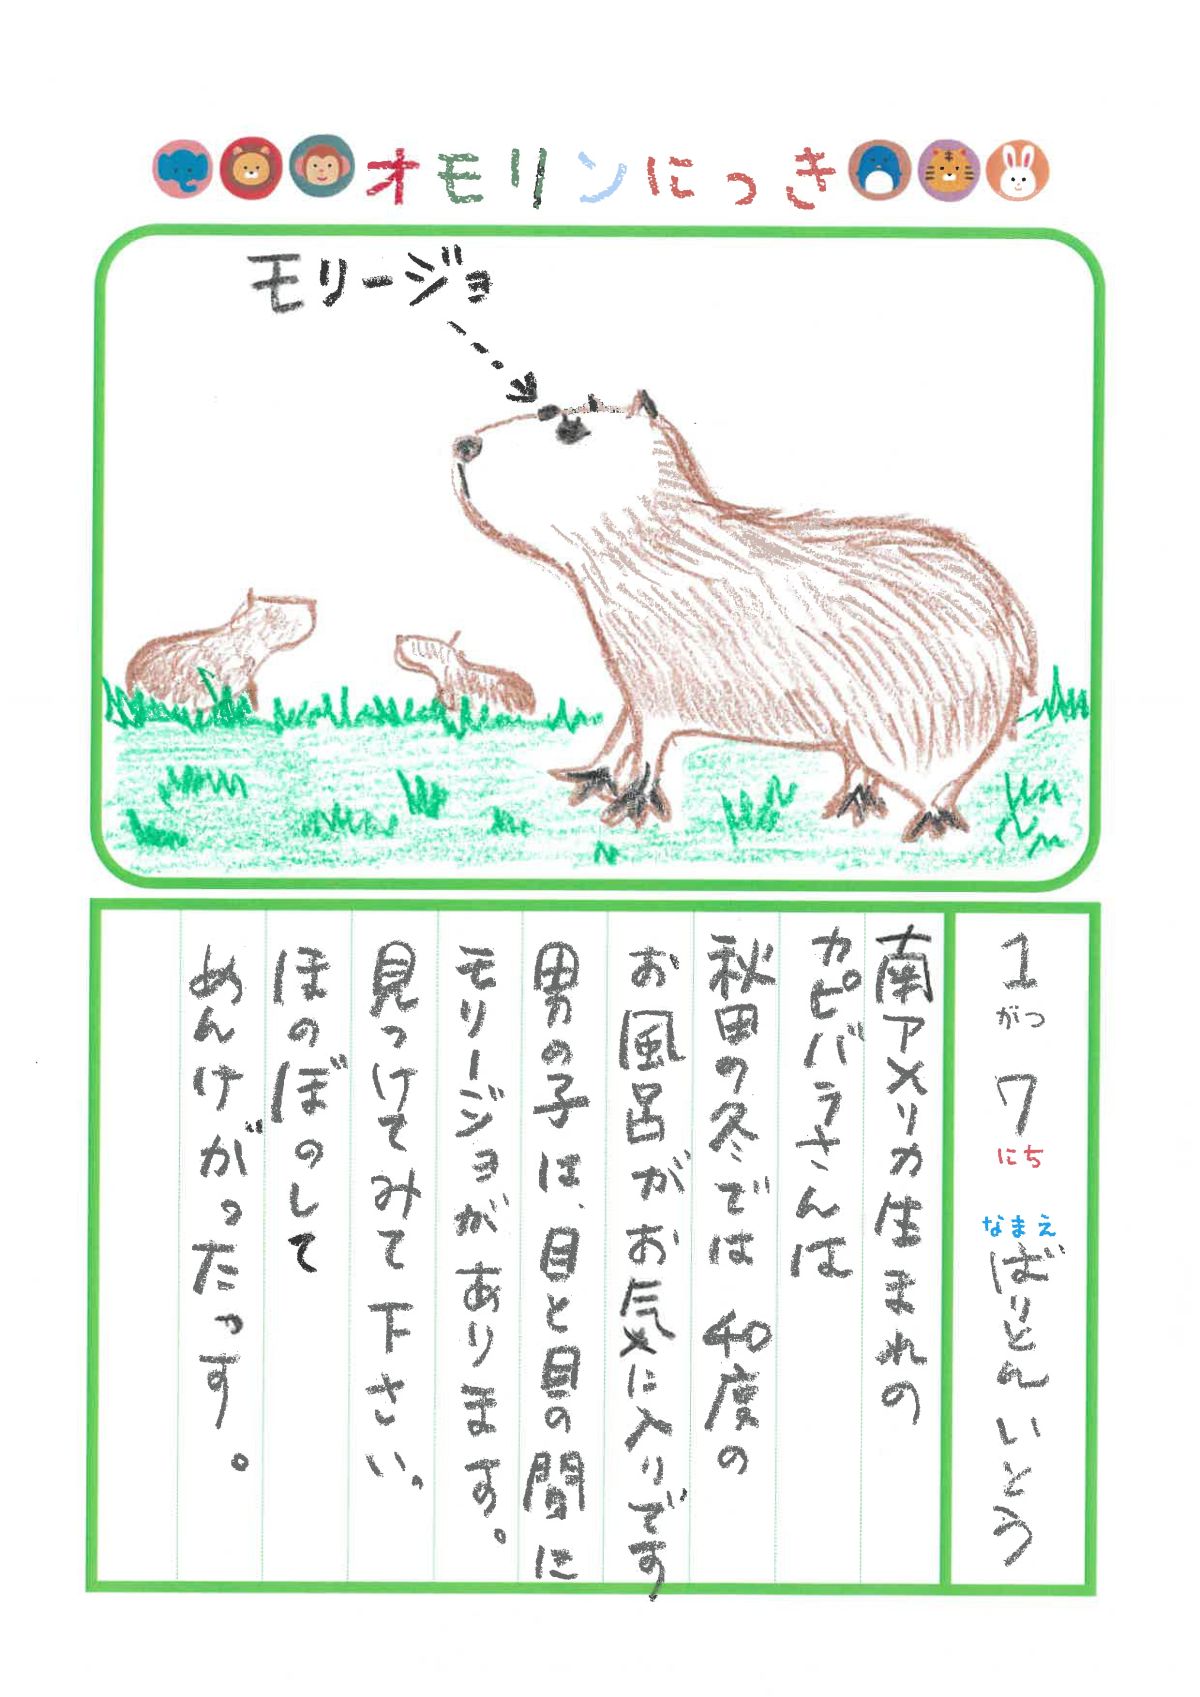 オモリンにっき
モリージョ
1がつ7にち なまえ ばりとん いとう
南アメリカ生まれの
カピバラさんは
秋田の冬では 40度の
お風呂がお気に入りです
男の子は、目と目の間に
モリージョがあります。
見つけてみて下さい。
ほのぼのして
めんけがったっす。